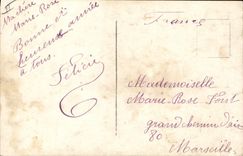 Ma chère
Marie-Rose
Bonne et
heureuse année
à tous
Félicie
France
Mademoiselle
Marie-Rose
grand chemin d'Aix
80
Marseille